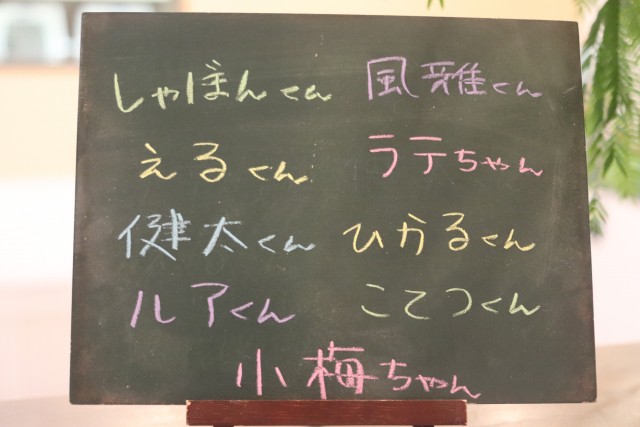 しゃぼんくん 風雅くん
えるくん ラテちゃん
健太くん ひかるくん
ルアくん こてつくん
小梅ちゃん